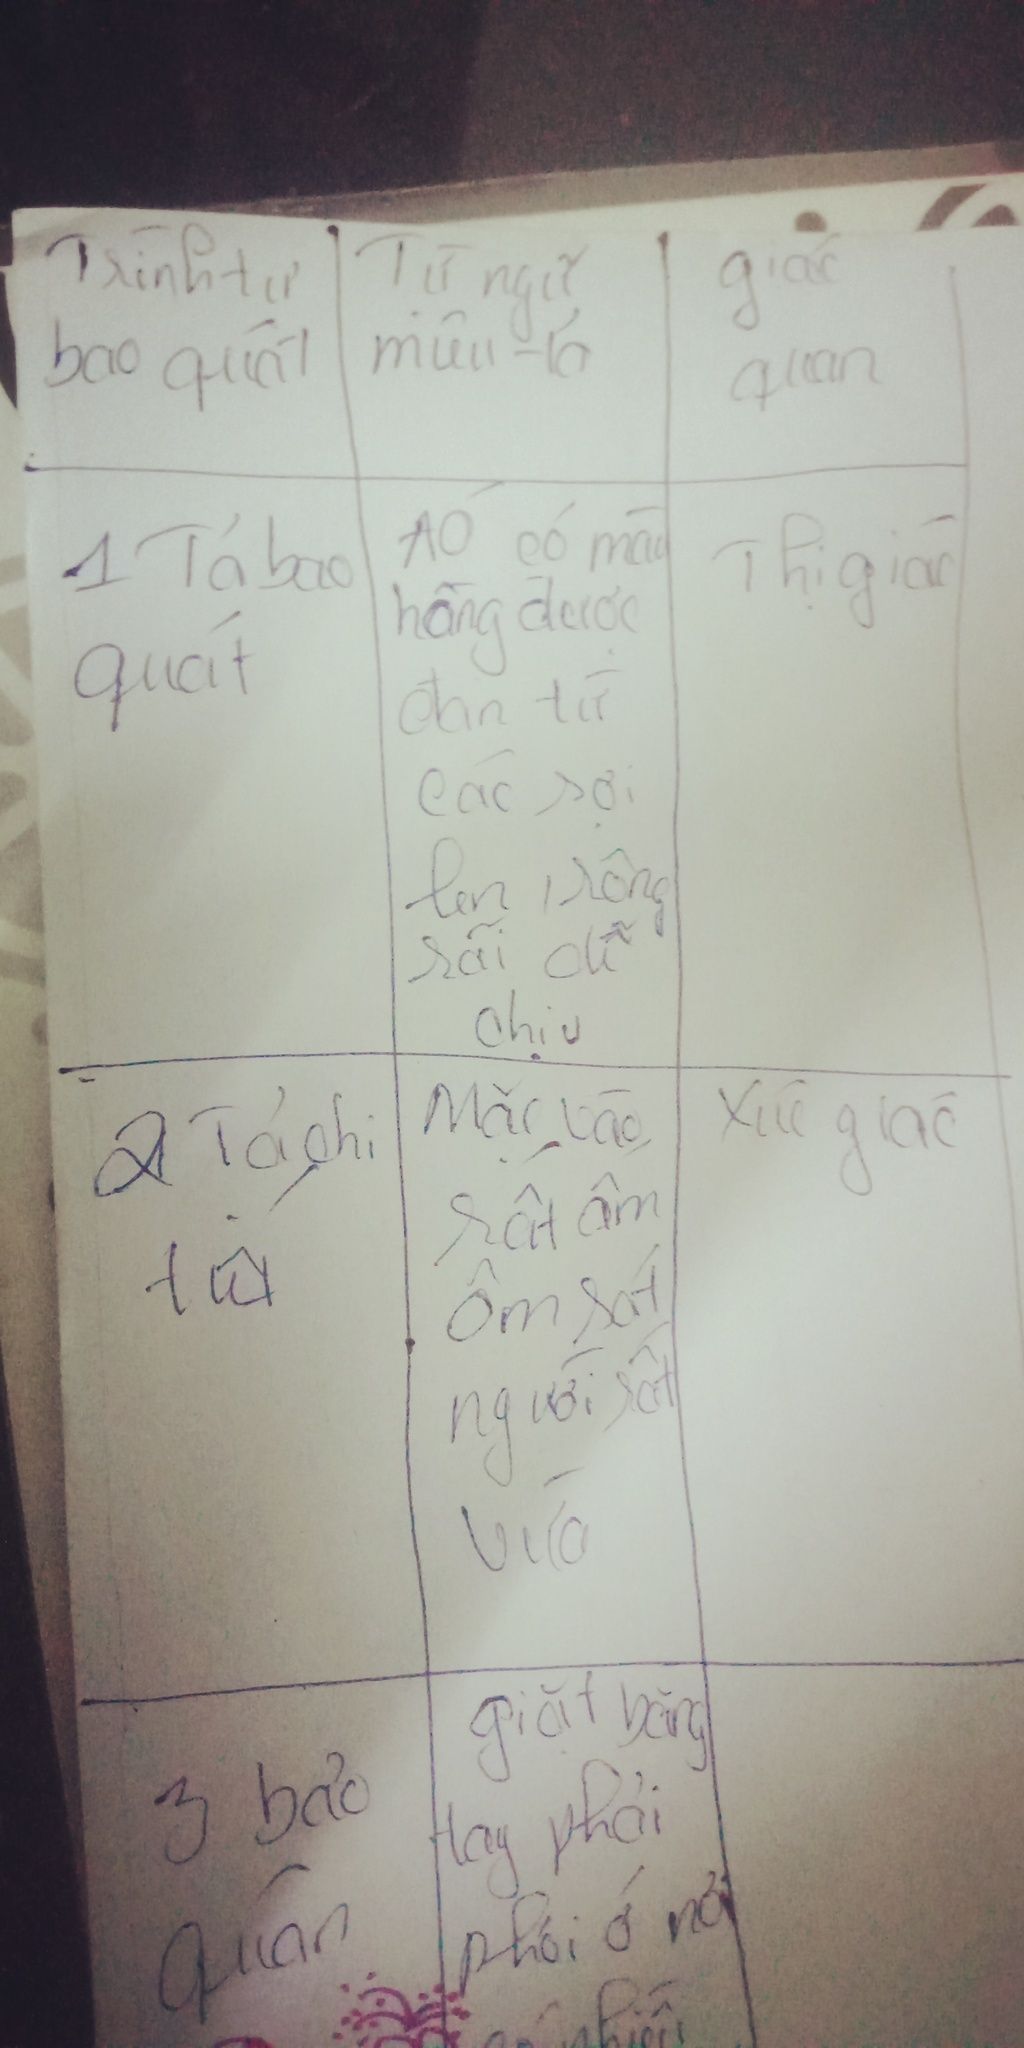 Trình tự
bao quát
Từ ngữ
miêu tả
giác
quan
1 Tả bao
quát
Áo có màu
hồng được
đan từ
các sợi
len, rộng
rãi dễ
chịu
Thị giác
2 Tả chi
tiết
Mặc vào
rất ấm
ôm sát
người rất
vừa
Xúc giác
3 bảo
quản
giặt bằng
tay phải
phơi ở nơi
có nhiều